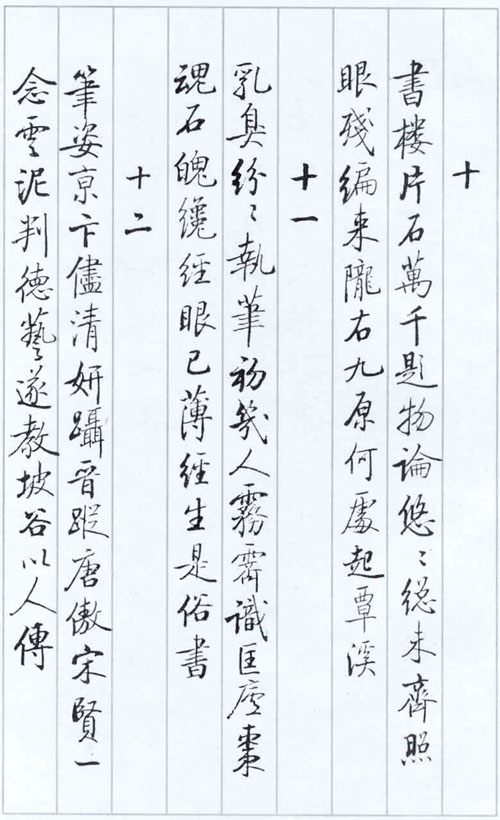 十
書楼片石萬千題物論悠〻總未齊照
眼殘編来隴右九原何處起覃溪
十一
乳臭紛〻執筆初幾人霧霽識匡廬棗
魂石魄纔經眼已薄經生是俗書
十二
筆姿京卞儘清妍躡晉蹤唐傲宋賢一
念雲泥判德藝遂教坡谷以人傳